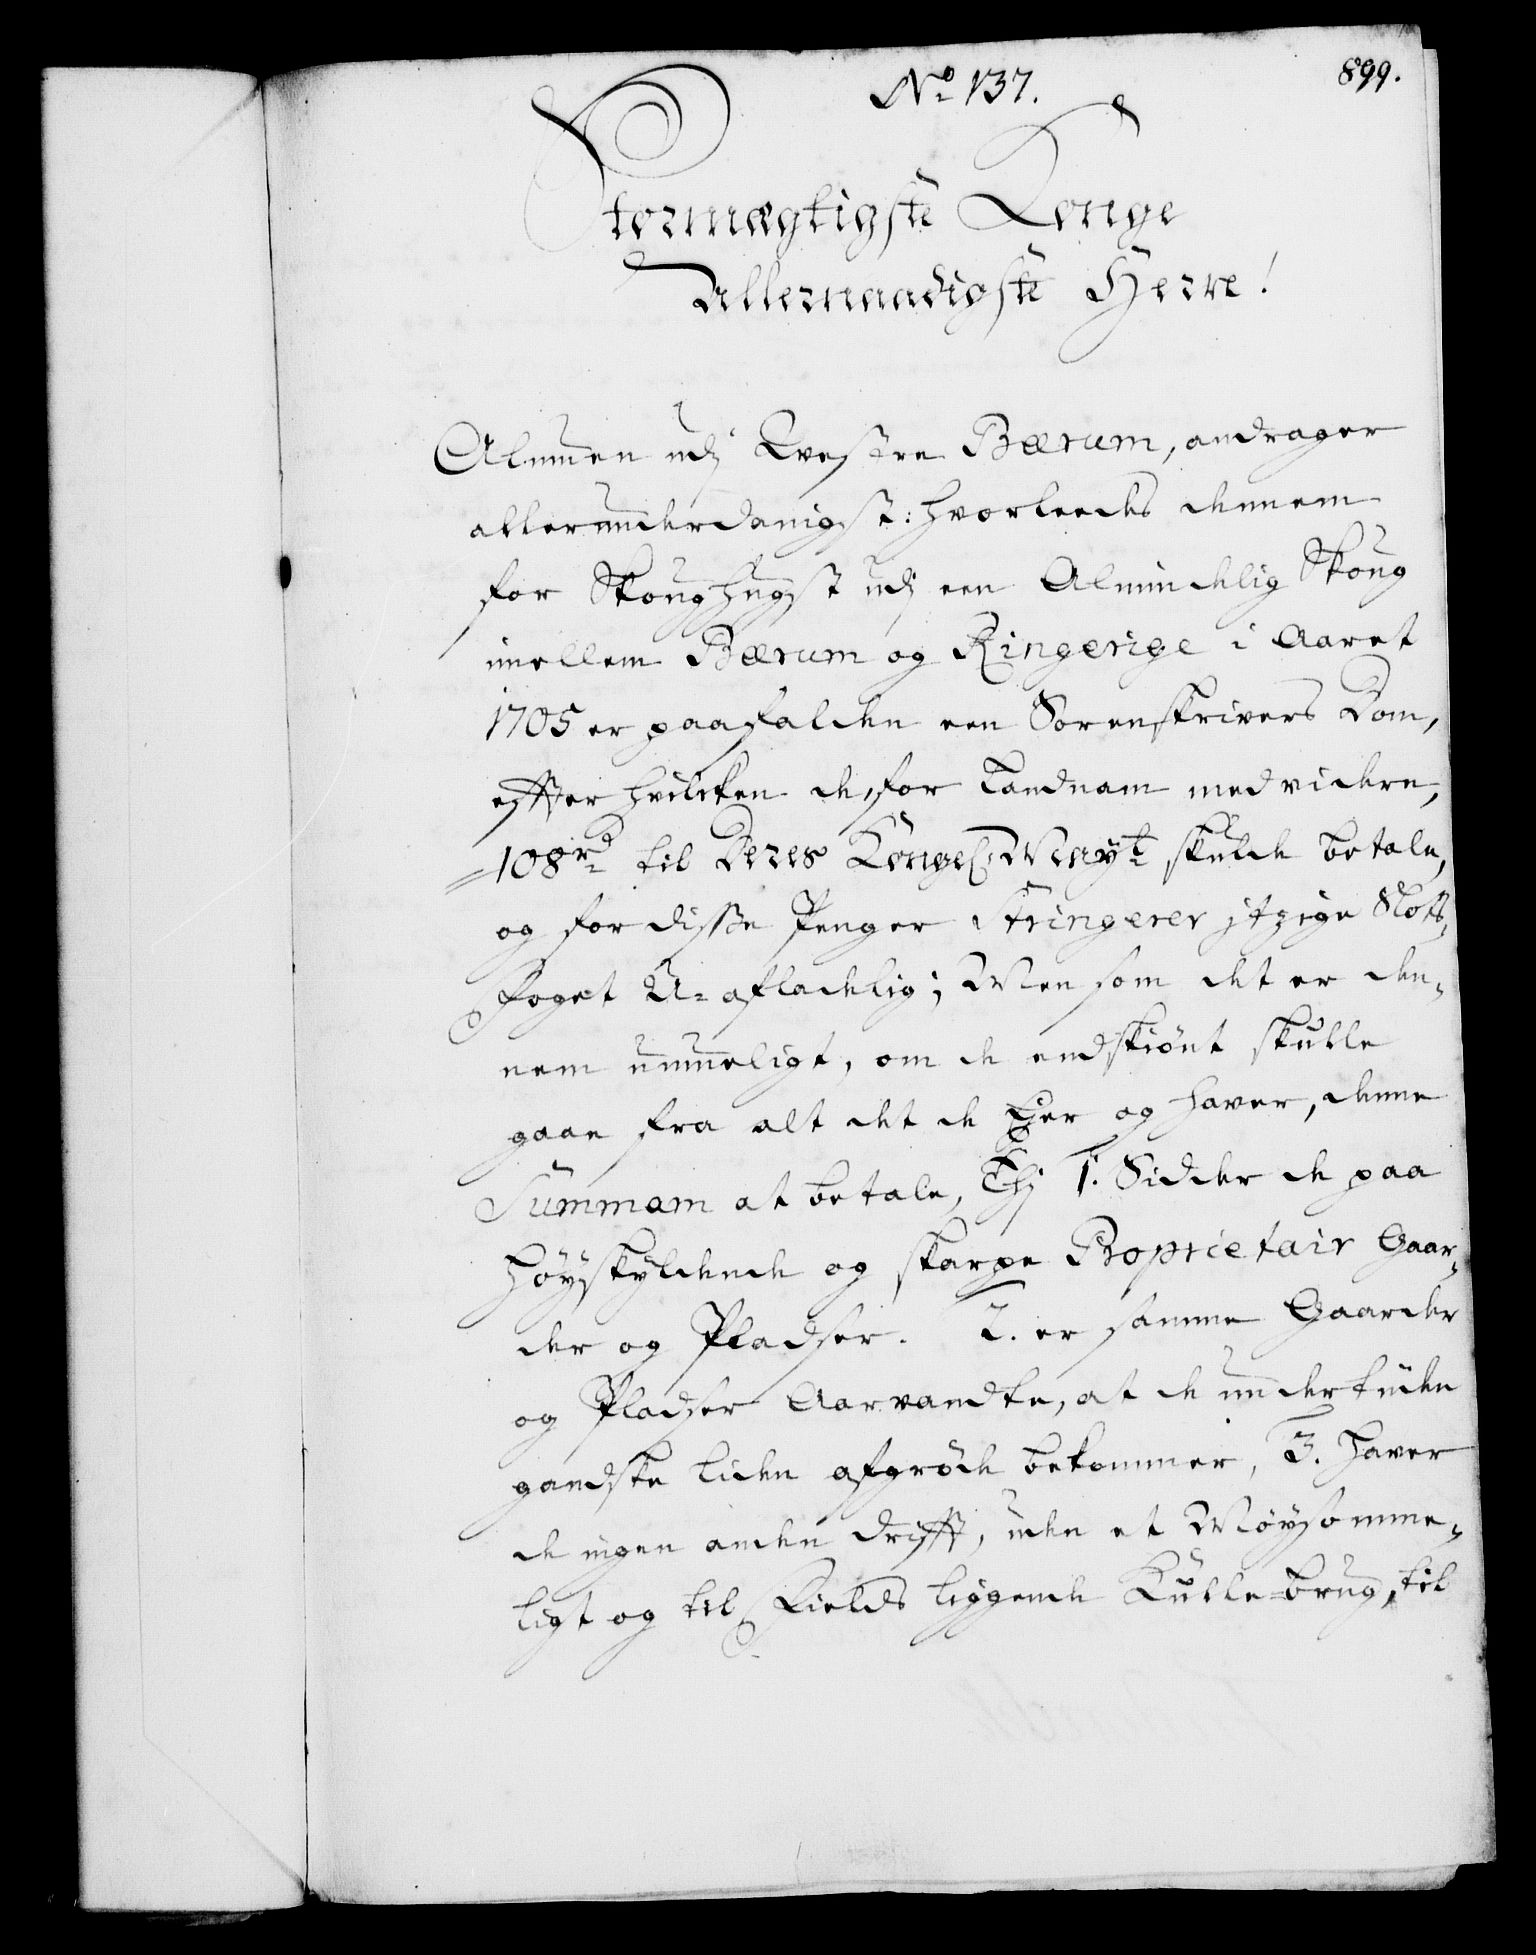 No 137.
899.
Stormægtigste Konge
Allernaadigste Herre!
Almuen udj Westre Bærum, andrager
allerunderdanigst: hvorleedes dennem
for Skoughugst udj een Almindelig Skoug
imellem Bærum og Ringerige i Aaret
1705 er paafalden een Sorenskrivers Dom,
effter hvilcken de, for Landnam med videre,
108 rd til Deres Kongel. Mayt skulde betale,
og for disse Penger Stringerer itzige Slots-
Foget U-afladelig; Men som det er den-
nem umueligt, om de endskiønt skulle
gaae fra alt det de Ejer og haver, denne
Summam at betale, Thj 1. Sidder de paa
høyskyldende og skarpe Proprietair Gaar-
der og Pladser. 2. er samme Gaarder
og Pladser Aarvandte, at de undertiden
gandske liden afgrøde bekommer, 3. haver
de ingen anden drifft, uden et Møysomme-
ligt og til Fields liggende Kulle-brug, til